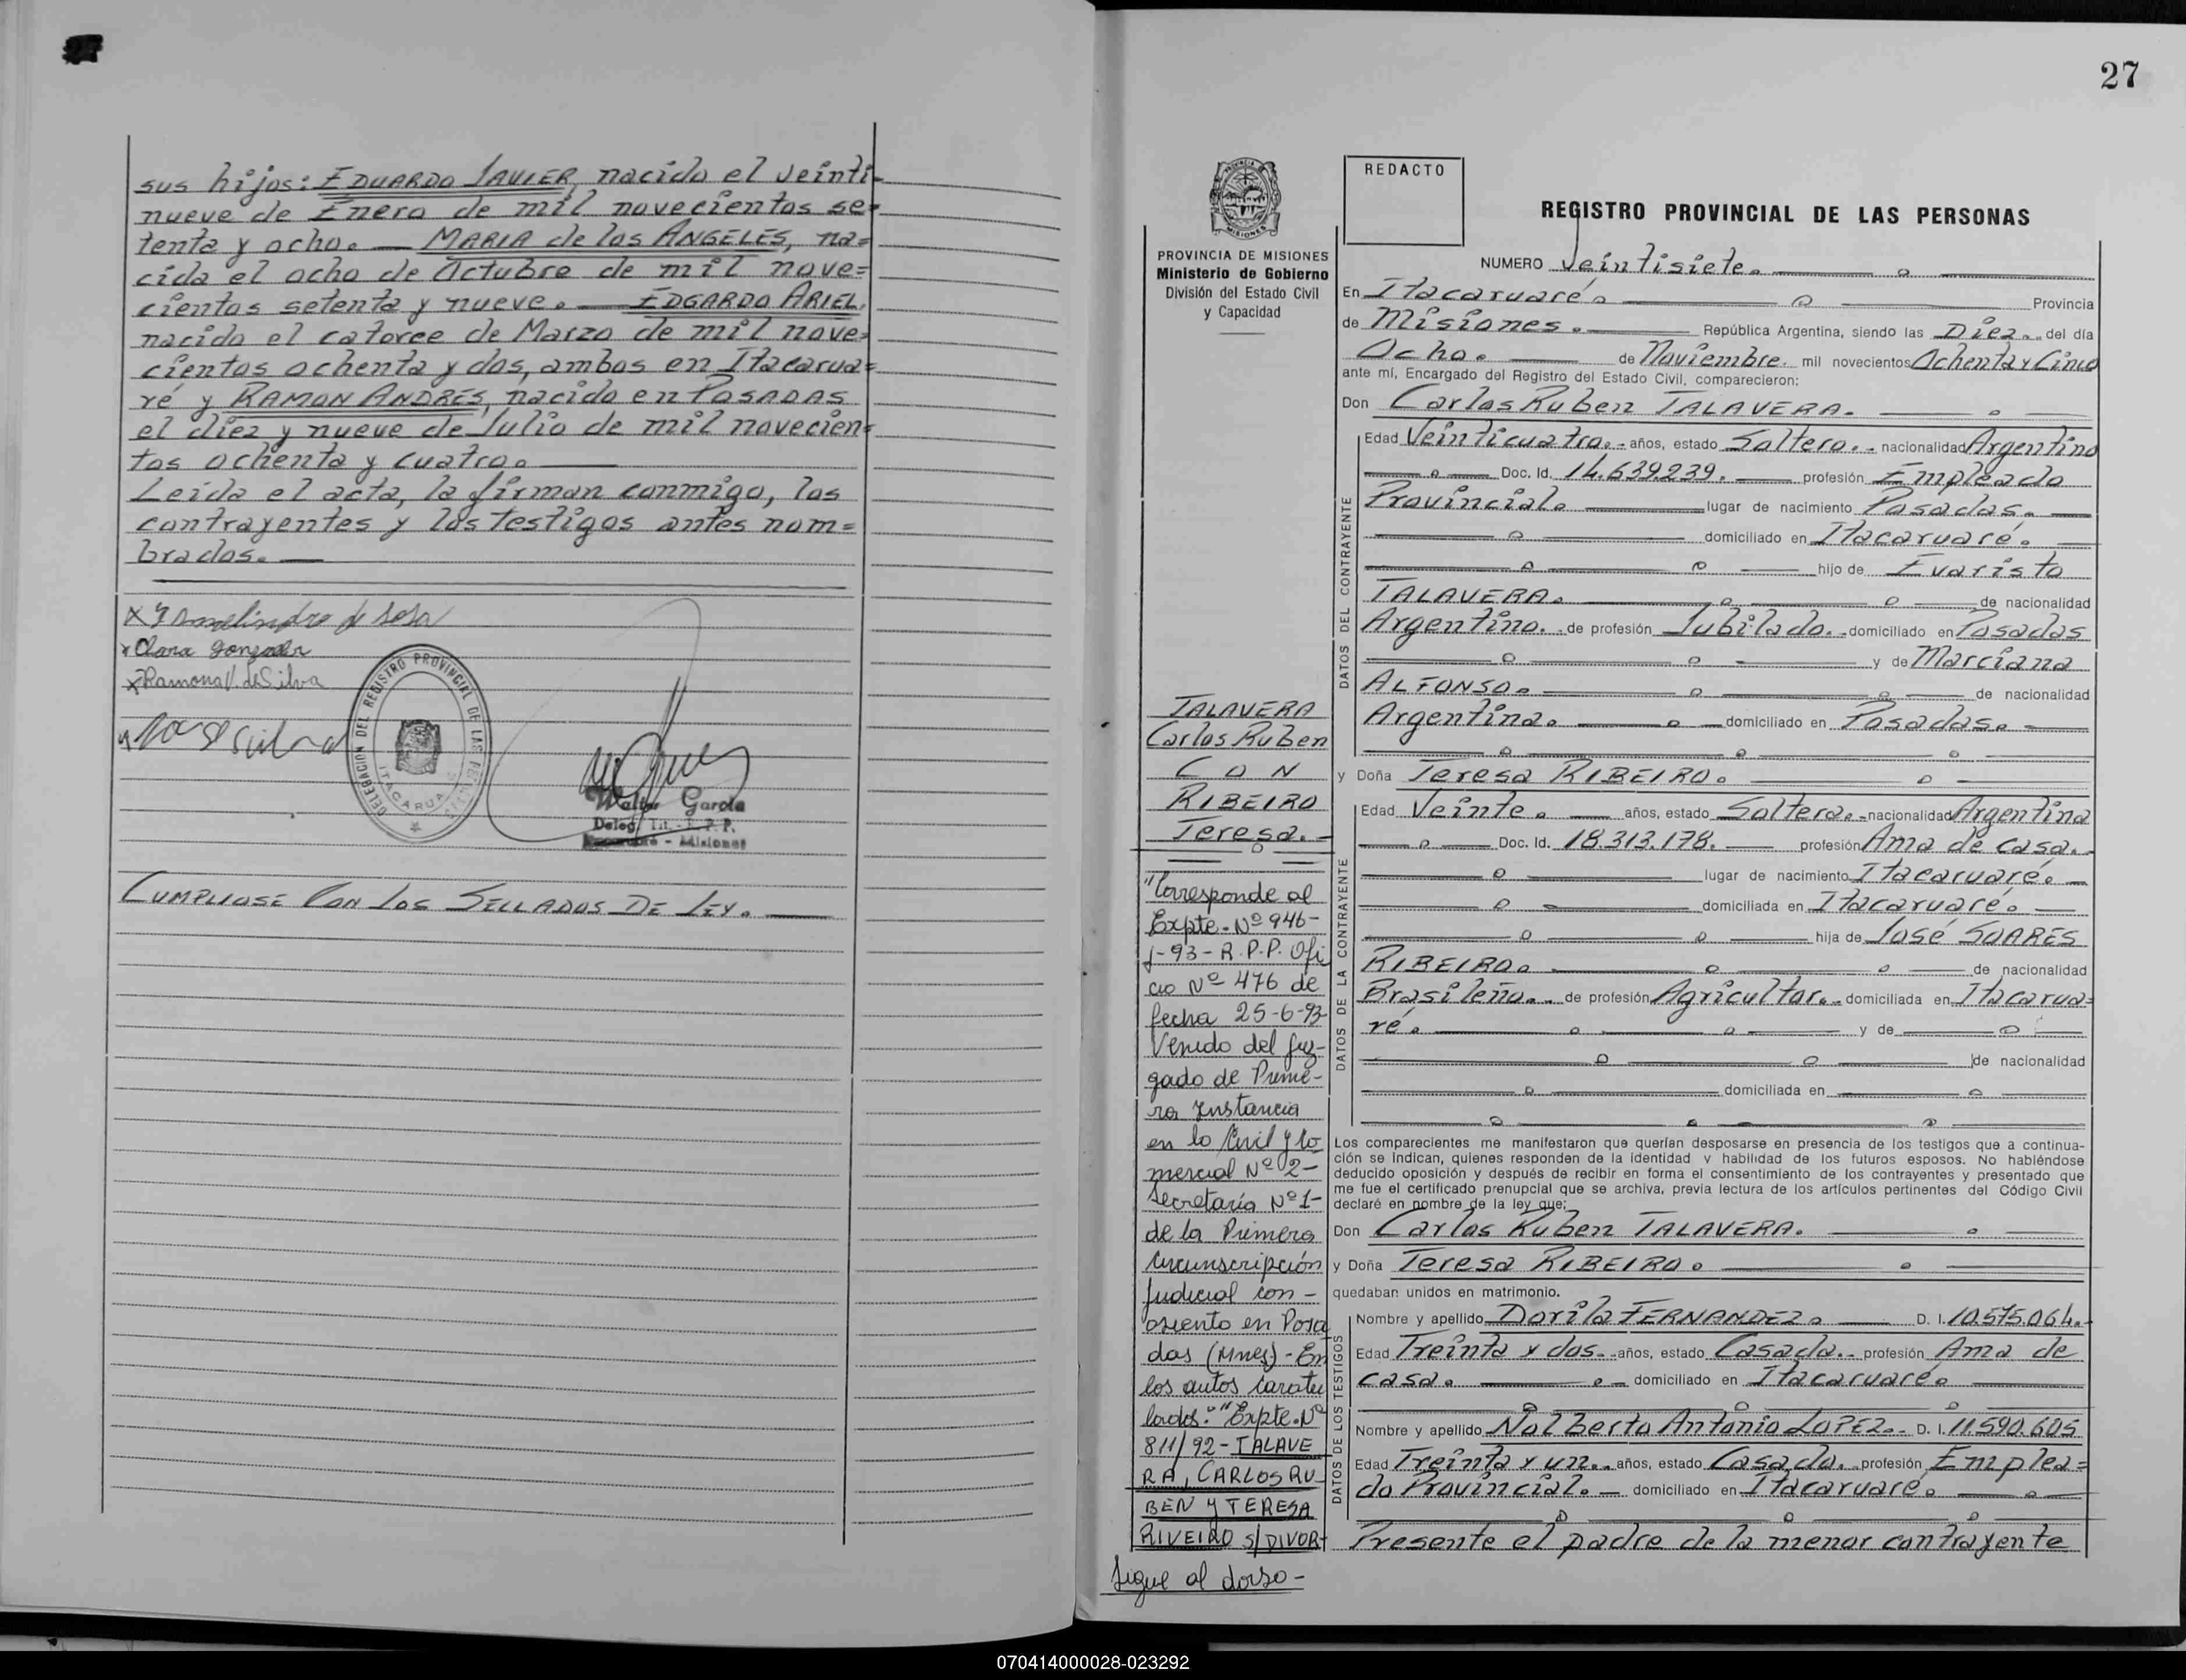 sus hijos: EDUARDO JAVIER, nacido el veinti-
nueve de Enero de mil novecientos se=
tenta y ocho. — MARIA de los ANGELES, na=
cida el ocho de Octubre de mil nove=
cientos setenta y nueve. — EDGARDO ARIEL,
nacido el catorce de Marzo de mil nove=
cientos ochenta y dos, ambos en Itacarua=
ré y RAMON ANDRES, nacido en POSADAS
el diez y nueve de Julio de mil novecien=
tos ochenta y cuatro. —
Leída el acta, la firman conmigo, los
contrayentes y los testigos antes nom=
brados. —
de sosa
x Clara Gonzalez
x Ramona V. de Silva
DELEGACION DEL REGISTRO PROVINCIAL DE LAS PERSONAS
ITACARUARE
Walter García
Deleg. Tit. - R. P. P.
Itacaruaré - Misiones
CUMPLIOSE CON LOS SELLADOS DE LEY. —
27
PROVINCIA DE MISIONES
Ministerio de Gobierno
División del Estado Civil
y Capacidad
TALAVERA
Carlos Ruben
CON
RIBEIRO
Teresa. -
"Corresponde al
Expte. Nº 946-
J-93- R.P.P. Ofi
cio Nº 476 de
fecha 25-6-93-
Venido del Juz-
gado de Prime-
ra Instancia
en lo Civil y Co
mercial Nº 2-
Secretaría Nº 1-
de la Primera
Circunscripción
Judicial con -
asiento en Posa
das (Mnes) - En
los autos caratu
lados: "Expte. Nº
811/92 - TALAVE
RA, CARLOS RU-
BEN Y TERESA
RIVEIRO S/DIVOR-
Sigue al dorso -
REDACTO
REGISTRO PROVINCIAL DE LAS PERSONAS
NUMERO Veintisiete. —
En Itacaruaré. — Provincia
de Misiones. — República Argentina, siendo las Diez. del día
Ocho. — de Noviembre. mil novecientos Ochenta y Cinco
ante mí, Encargado del Registro del Estado Civil, comparecieron:
Don Carlos Ruben TALAVERA. —
DATOS DEL CONTRAYENTE
Edad Veinticuatro. - años, estado Soltero. - nacionalidad Argentino
— Doc. Id. 14.639.239. — profesión Empleado
Provincial. — lugar de nacimiento Posadas. —
— domiciliado en Itacaruaré. —
— hijo de Evaristo
TALAVERA. — de nacionalidad
Argentino. - de profesión Jubilado. - domiciliado en Posadas
— y de Marciana
ALFONSO. — de nacionalidad
Argentina. — domiciliado en Posadas. —
y Doña Teresa RIBEIRO. —
DATOS DE LA CONTRAYENTE
Edad Veinte. — años, estado Soltera. - nacionalidad Argentina
— Doc. Id. 18.313.178. — profesión Ama de casa. -
— lugar de nacimiento Itacaruaré. —
— domiciliada en Itacaruaré. —
— hija de José SOARES
RIBEIRO. — de nacionalidad
Brasileña. - de profesión Agricultor. - domiciliada en Itacarua=
ré. — y de —
— de nacionalidad
— domiciliada en —
Los comparecientes me manifestaron que querían desposarse en presencia de los testigos que a continua-
ción se indican, quienes responden de la identidad y habilidad de los futuros esposos. No habiéndose
deducido oposición y después de recibir en forma el consentimiento de los contrayentes y presentado que
me fue el certificado prenupcial que se archiva, previa lectura de los artículos pertinentes del Código Civil
declaré en nombre de la ley que:
Don Carlos Ruben TALAVERA. —
y Doña Teresa RIBEIRO. —
quedaban unidos en matrimonio.
DATOS DE LOS TESTIGOS
Nombre y apellido Dorila FERNANDEZ. — D. I. 10.575.064. -
Edad Treinta y dos. - años, estado Casada. - profesión Ama de
casa. — domiciliado en Itacaruaré. —
Nombre y apellido Nolberto Antonio LOPEZ. - D. I. 11.590.605
Edad Treinta y un. - años, estado Casado. - profesión Emplea=
do Provincial. — domiciliado en Itacaruaré. —
Presente el padre de la menor contrayente
070414000028-023292